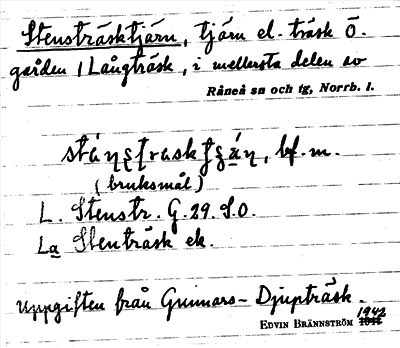 Stensträsktjärn, tjärn el. träsk Ö.
gården i Långträsk, i mellersta delen av
Råneå sn och tg, Norrb. l.
bf. m.
(bruksmål)
L. Stenstr. G. 29. S.O.
La Stenträsk ek.
Uppgiften från Gunnars-Djupträsk.
1942
EDVIN BRÄNNSTRÖM